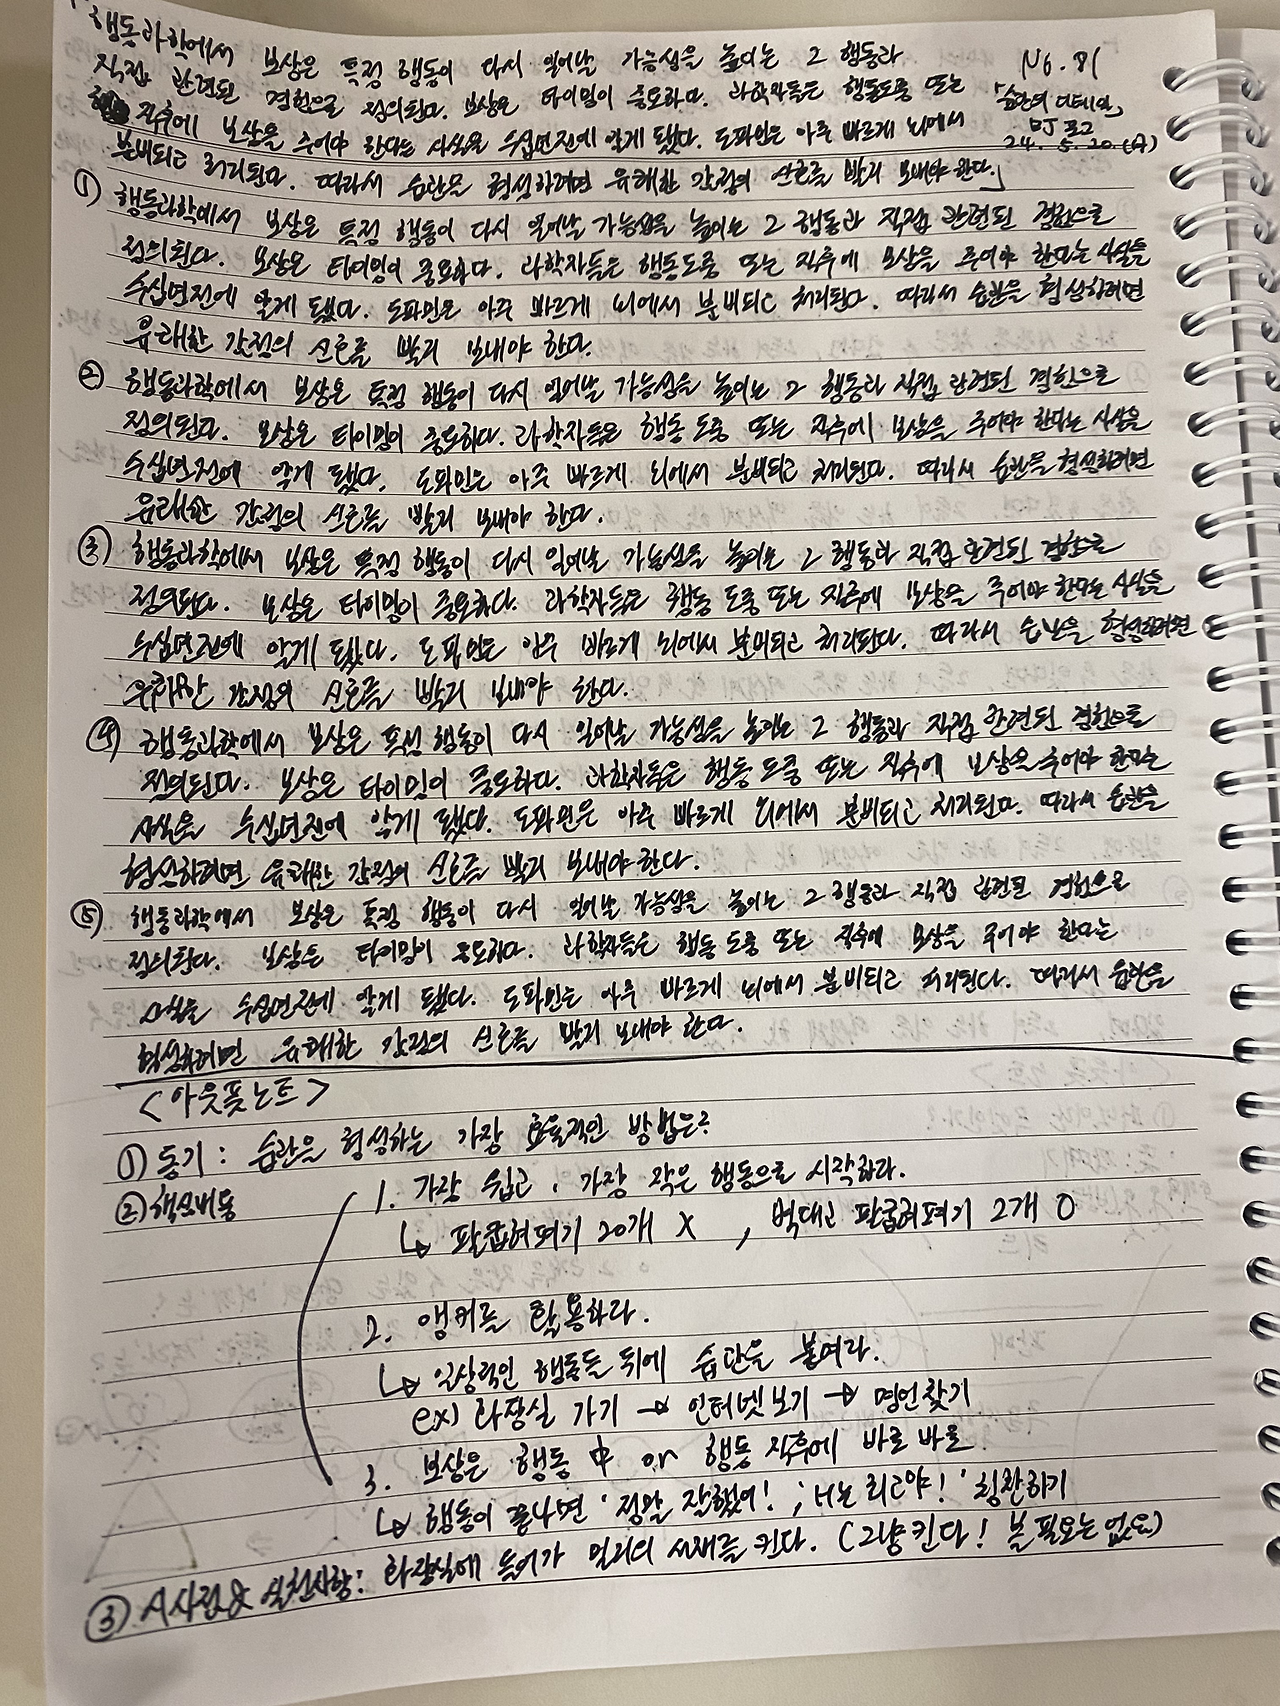 행동과학에서 보상은 특정 행동이 다시 일어날 가능성을 높이는 그 행동과
No. 81
직접 관련된 경험으로 정의된다. 보상은 타이밍이 중요하다. 과학자들은 행동도중 또는
「습관의 디테일」
직후에 보상을 주어야 한다는 사실을 수십년전에 알게 됐다. 도파민은 아주 빠르게 뇌에서
BJ 포그
24. 5. 20. (A)
분비되고 처리된다. 따라서 습관을 형성하려면 유쾌한 감정의 신호를 빨리 보내야 한다.」
① 행동과학에서 보상은 특정 행동이 다시 일어날 가능성을 높이는 그 행동과 직접 관련된 경험으로
정의된다. 보상은 타이밍이 중요하다. 과학자들은 행동도중 또는 직후에 보상을 주어야 한다는 사실을
수십년전에 알게 됐다. 도파민은 아주 빠르게 뇌에서 분비되고 처리된다. 따라서 습관을 형성하려면
유쾌한 감정의 신호를 빨리 보내야 한다.
② 행동과학에서 보상은 특정 행동이 다시 일어날 가능성을 높이는 그 행동과 직접 관련된 경험으로
정의된다. 보상은 타이밍이 중요하다. 과학자들은 행동 도중 또는 직후에 보상을 주어야 한다는 사실을
수십년전에 알게 됐다. 도파민은 아주 빠르게 뇌에서 분비되고 처리된다. 따라서 습관을 형성하려면
유쾌한 감정의 신호를 빨리 보내야 한다.
③ 행동과학에서 보상은 특정 행동이 다시 일어날 가능성을 높이는 그 행동과 직접 관련된 경험으로
정의된다. 보상은 타이밍이 중요하다. 과학자들은 행동 도중 또는 직후에 보상을 주어야 한다는 사실을
수십년전에 알게 됐다. 도파민은 아주 빠르게 뇌에서 분비되고 처리된다. 따라서 습관을 형성하려면
유쾌한 감정의 신호를 빨리 보내야 한다.
④ 행동과학에서 보상은 특정 행동이 다시 일어날 가능성을 높이는 그 행동과 직접 관련된 경험으로
정의된다. 보상은 타이밍이 중요하다. 과학자들은 행동 도중 또는 직후에 보상을 주어야 한다는
사실을 수십년전에 알게 됐다. 도파민은 아주 빠르게 뇌에서 분비되고 처리된다. 따라서 습관을
형성하려면 유쾌한 감정의 신호를 빨리 보내야 한다.
⑤ 행동과학에서 보상은 특정 행동이 다시 일어날 가능성을 높이는 그 행동과 직접 관련된 경험으로
정의된다. 보상은 타이밍이 중요하다. 과학자들은 행동 도중 또는 직후에 보상을 주어야 한다는
사실을 수십년전에 알게 됐다. 도파민은 아주 빠르게 뇌에서 분비되고 처리된다. 따라서 습관을
형성하려면 유쾌한 감정의 신호를 빨리 보내야 한다.
<아웃풋노트>
① 동기 : 습관을 형성하는 가장 효율적인 방법은?
② 핵심내용 1. 가장 쉽고, 가장 작은 행동으로 시작하라.
↳ 팔굽혀펴기 20개 X , 벽대고 팔굽혀펴기 2개 O
2. 앵커를 활용하라.
↳ 일상적인 행동들 뒤에 습관을 붙여라.
ex) 화장실 가기 → 인터넷보기 → 명언찾기
3. 보상은 행동 中 or 행동 직후에 바로 바로
↳ 행동이 끝나면 '정말 잘했어! , 너는 최고야!' 칭찬하기
③ 시사점 & 실천사항 : 화장실에 들어가 밀리의 서재를 킨다. (그냥 킨다! 볼 필요는 없음)